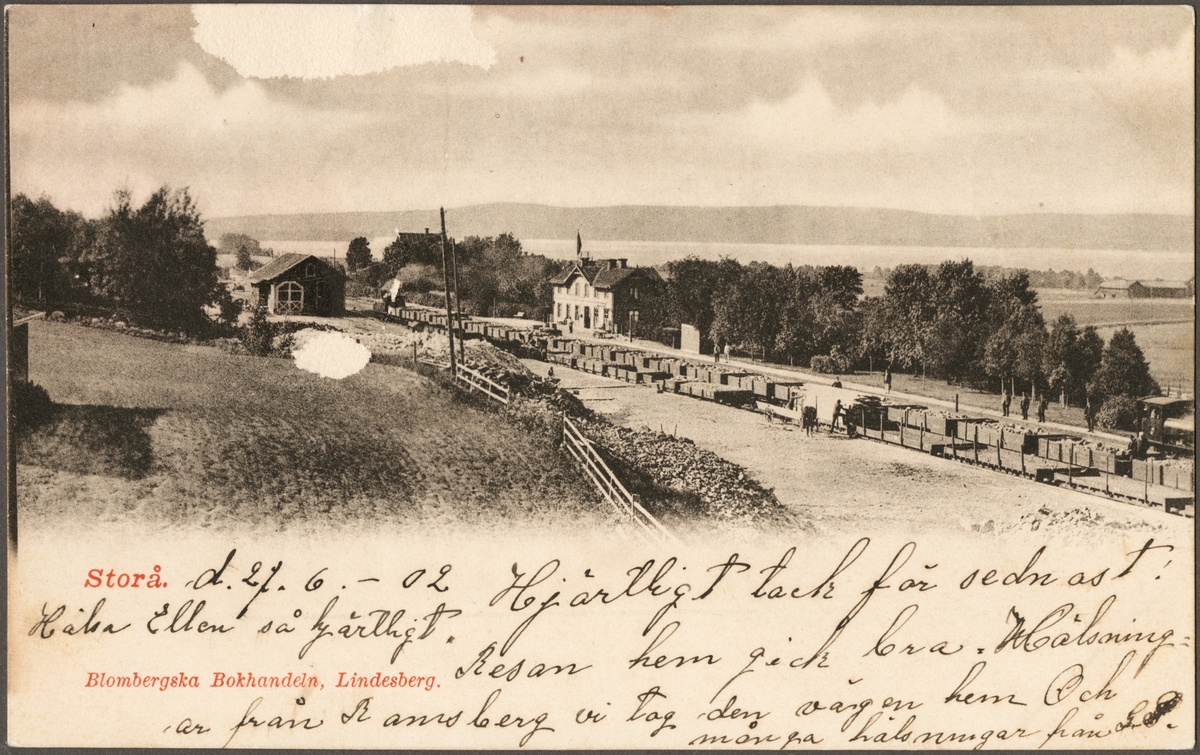 Storå. d. 27. 6. – 02 Hjärtligt tack för sednast!
Hälsa Ellen så hjärtligt.
Resan hem gick bra. Hälsning-
Blombergska Bokhandeln, Lindesberg.
ar från Ramsberg vi tog den vägen hem Och
många hälsningar från